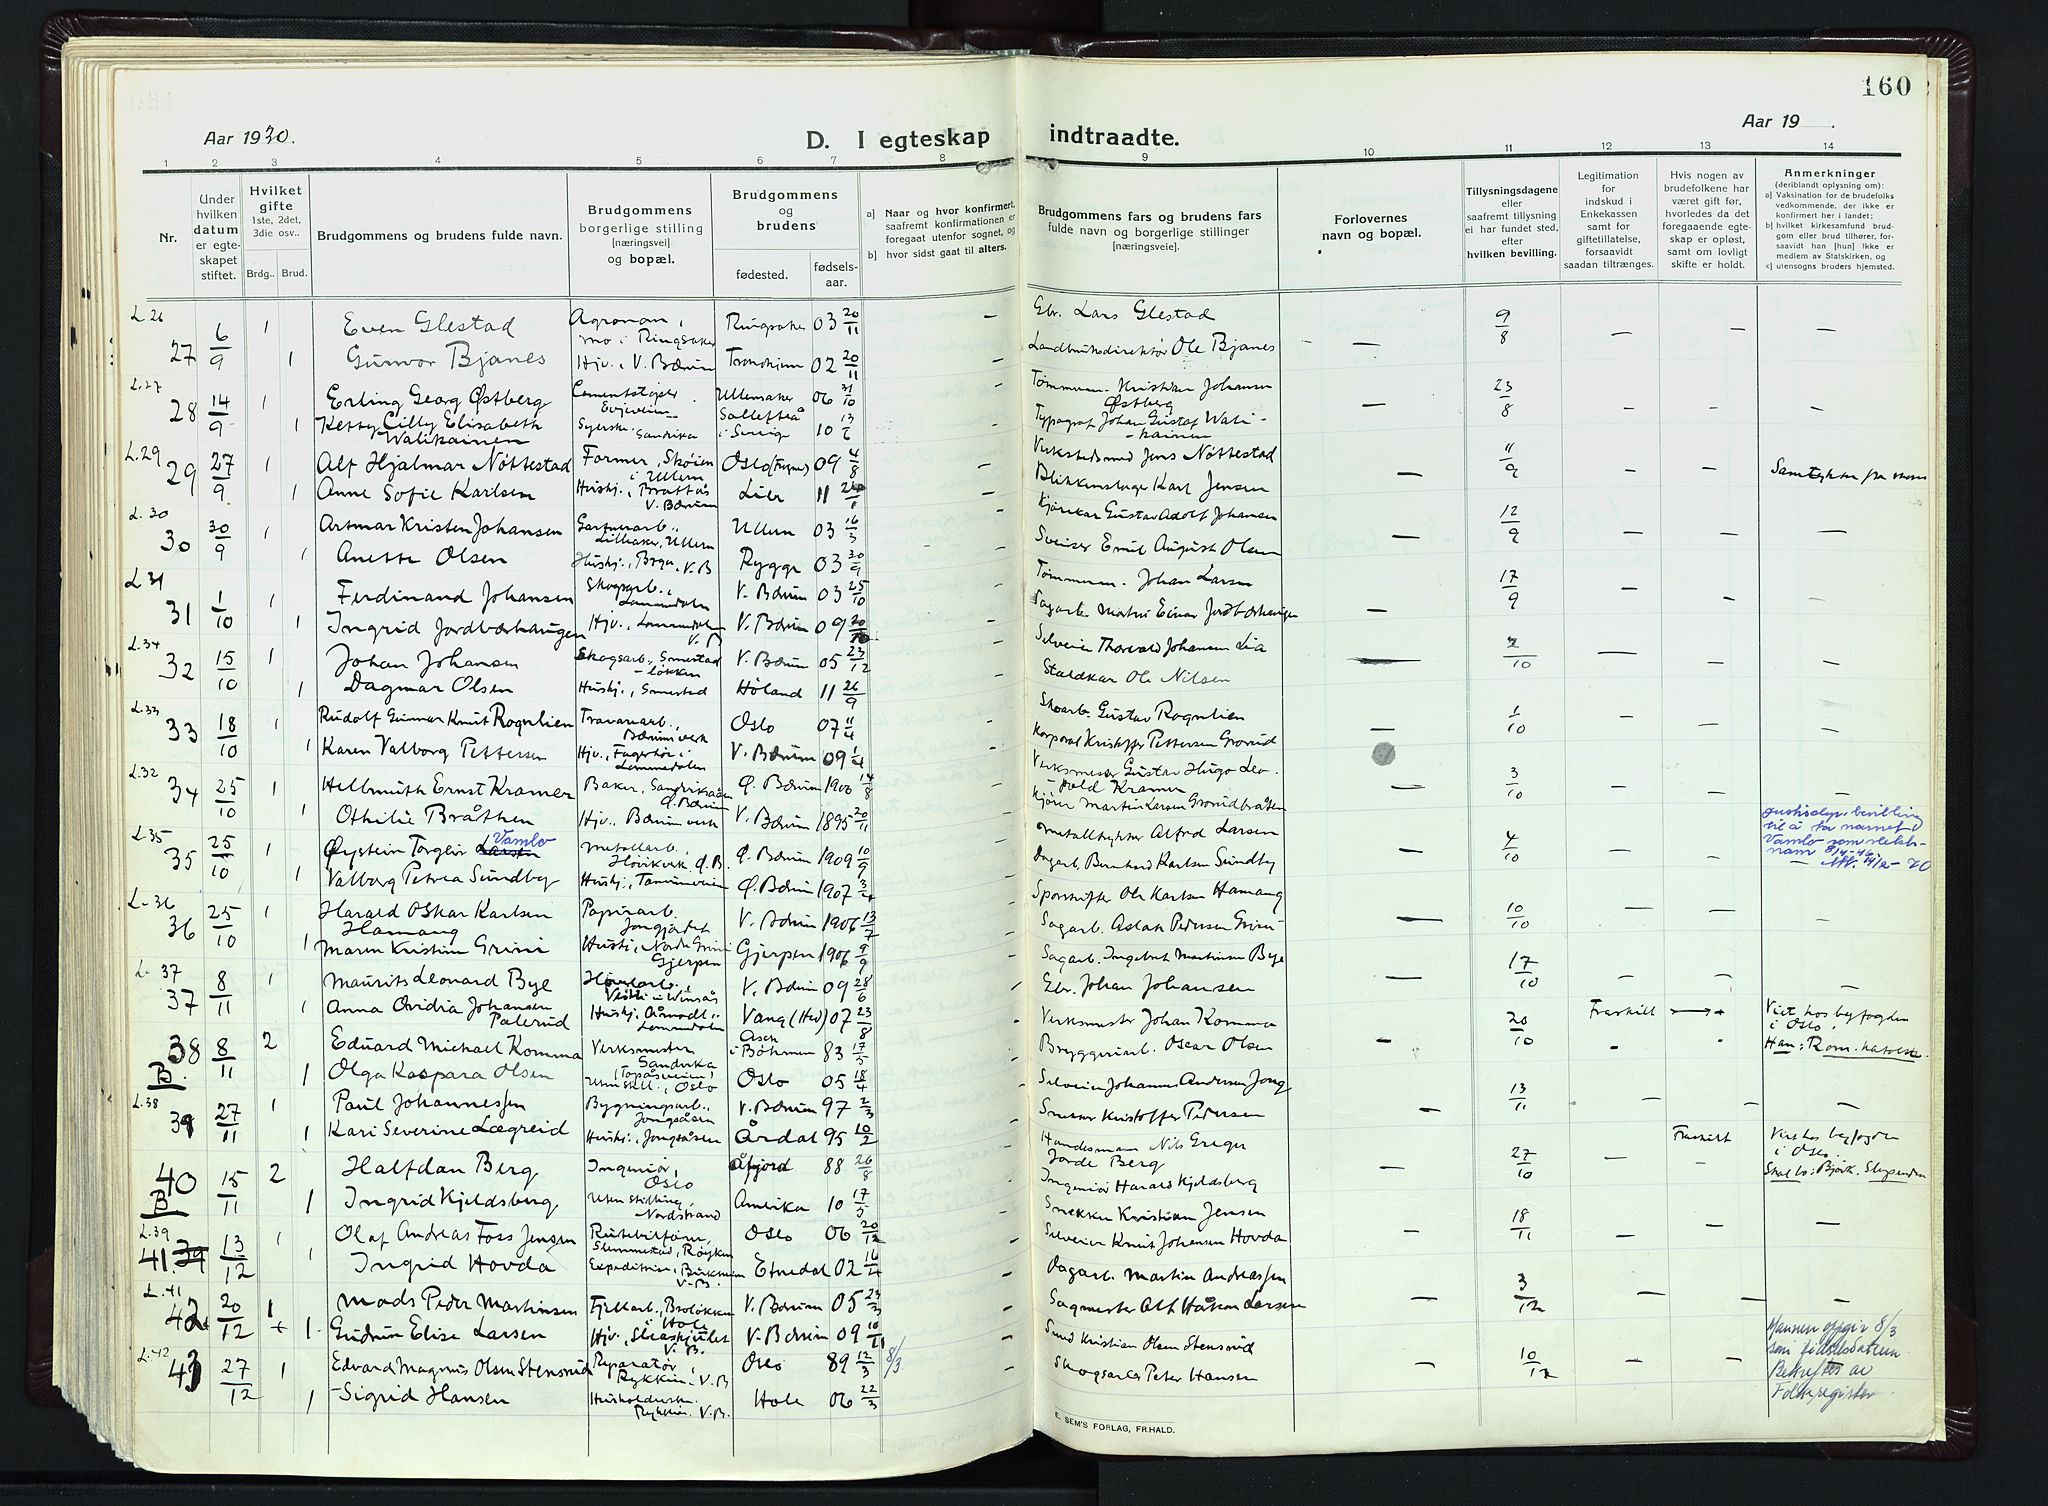 160
Aar 1930.
D. I egteskap indtraadte.
Aar 19 .
1 2 3 4 5 6 7 8 9 10 11 12 13 14
Nr.
Under hvilken datum er egteskapet stiftet.
Hvilket gifte 1ste, 2det, 3die osv..
Brdg.. Brud.
Brudgommens og brudens fulde navn.
Brudgommens borgerlige stilling [næringsvei] og bopæl.
Brudgommens og brudens
fødested. fødselsaar.
a] Naar og hvor konfirmert, saafremt konfirmationen er foregaat utenfor sognet, og
b] hvor sidst gaat til alters.
Brudgommens fars og brudens fars fulde navn og borgerlige stillinger [næringsveie].
Forlovernes navn og bopæl.
Tillysningsdagene eller saafremt tillysning ei har fundet sted, efter hvilken bevilling.
Legitimation for indskud i Enkekassen samt for giftetillatelse, forsaavidt saadan tiltrænges.
Hvis nogen av brudefolkene har været gift før, hvorledes da det foregaaende egteskap er opløst, samt om lovligt skifte er holdt.
Anmerkninger (deriblandt oplysning om):
a) Vaksination for de brudefolks vedkommende, der ikke er konfirmert her i landet;
b) hvilket kirkesamfund brudgom eller brud tilhører, forsaavidt han [hun] ikke er medlem av Statskirken, og
c) utensogns bruders hjemsted.
L.26 27 6/9 1 Even Glestad Agronom, mo i Ringsaker Ringsaker 03 20/11 – Gbr. Lars Glestad 9/8
1 Gunvor Bjanes Hjv., V. Bærum Trondhjem 02 20/11 – Landbruksdirektør Ole Bjanes
L.27 28 14/9 1 Erling Georg Østberg Cementstøper Evjeveien Ullensaker 06 31/10 – Tømmerm. Kristian Johansen Østberg 23/8
1 Ketty Cilly Elisabeth Walikainen Syerske. Sandvika Sollefteå i Sverige 10 13/6 Typograf Johan Gustaf Walikainen
L.29 29 27/9 1 Alf Hjalmar Nøttestad Former, Skøien i Ullern Oslo 09 4/8 – Verkstedsmed Jens Nøttestad 11/9
1 Anne Sofie Karlsen Hushj., Brattås V. Bærum Lier 11 – Blikkenslager Karl Jensen Samtykke fra
L.30 30 30/9 1 Artmar Kristen Johansen Gartnerarb., Lilleaker, Ullern Ullern 03 16/3 – Kjørekar Gustav Adolf Johansen 12/9
1 Anette Olsen Hushj., V.B Rygge 03 30/9 – Sveiser Emil August Olsen
L.31 31 1/10 1 Ferdinand Johansen Skogsarb., Lommedalen V. Bærum 03 25/10 – Tømmerm. Johan Larsen 17/9
1 Ingrid Jordbærhaugen Hjv., Lommedalen V.B V. Bærum 09 20/10 – Sagarb. Einar Jordbærhaugen
L.34 32 15/10 1 Johan Johansen Skogsarb., Smestad-løkken V. Bærum 05 23/12 – Selveier Thorvald Johansen Lia 2/10
1 Dagmar Olsen Hushj., Smestad Høland 11 26/9 Staldkar Ole Nilsen
L.33 33 18/10 1 Rudolf Gunnar Knut Rognlien Travarearb., Bærums verk Oslo 07 11/4 – Skoarb. Gustav Rognlien 1/10
1 Karen Valborg Pettersen Hjv., i Lommedalen V. Bærum 09 1/4 – Korporal Kristoffer Pettersen Grorud
L.32 34 25/10 1 Hellmuth Ernst Kramer Baker, Sandvikaåsen Ø. Bærum Ø. Bærum 1900 14/8 – Verksmester Gustav Hugo Leopold Kramer 3/10
1 Othilie Bråthen Hjv., Bærums verk V. Bærum 1895 20/11 – Kjører Martin Larsen Grorudbråten
L.35 35 25/10 1 Øystein Torgeir Larsen Vamlo Metallarb. Høvikverk Ø.B. Ø. Bærum 1909 10/9 – Metalltrykker Alfred Larsen 4/10
Justisdep. bevilling til å ta navnet Vamlo som slektsnavn
1 Valborg Petrea Sundby Hushj., Tanumveien Ø. Bærum 1907 – Dagarb. Bernhard Karlsen Sundby
L.36 36 25/10 1 Harald Oskar Karlsen Hamang Papirarb. Jongjordet V. Bærum 1906 13/7 Sporskifter Ole Karlsen Hamang 10/10
1 Maren Kristine Grini Hushj., Nordre Grini Gjerpen Gjerpen 1906 9/9 – Sagarb. Aslak Pedersen Grini
L. 37 37 8/11 1 Maurits Leonard Bye V. Bærum 09 28/6 Sagarb. Ingebret Martinsen Bye 17/10
1 Anna Ovidia Johansen Palerud Hushj. Lommedalen Vang (Hed) 07 23/8 Gbr. Johan Johansen
38 B. 8/11 2 Eduard Michael Komma Verksmester Sandvika (Topåsveien) Asch i Bøhmen 83 17/5 Verksmester Johan Komma 20/10 Fraskilt Viet hos byfogden i Oslo. Han: Rom. katolsk.
1 Olga Kaspara Olsen Uten still., Oslo Oslo 05 18/4 – Bryggeriarb. Oscar Olsen
L.38 39 27/11 1 Paul Johannessen Bygningsarb., Jongsåsen V. Bærum 97 2/3 Selveier Johannes Andersen Jong 13/11
1 Kari Severine Lægreid Hushj., Jongsåsen Årdal 95 10/2 – Snekker Kristoffer Pedersen
40 B 15/11 2 Halfdan Berg Ingeniør, Oslo Åfjord 88 26/8 Handelsmann Nils Greger Jorde Berg 27/10 Fraskilt Viet hos byfogden i Oslo. Skal bo: Bjørk. Slependen
1 Ingrid Kjeldsberg Uten stilling, Nordstrand Amerika 10 17/5 Ingeniør Harald Kjeldsberg
L.39 41 39 13/12 1 Olaf Andreas Foss Jensen Rutebilfører, Slemmestad, Røyken Oslo 06 20/12 Snekker Kristian Jensen 18/11
1 Ingrid Hovda Expeditrise, V.B. Etnedal 02 16/4 Selveier Knut Johansen Hovda
L.41 42 20/12 1 Mads Peder Martinsen Fjellarb., Broløkken i Hole V. Bærum 05 23/3 Dagarb. Martin Andreassen 3/12
+ 1 Gudrun Elise Larsen Hjv., V.B. V. Bærum 09 10/11 Sagmester Alf Håkon Larsen
L.42 43 27/12 1 Edvard Magnus Olsen Stensrud Reparatør, Rykkin i V.B Oslo 89 12/3 8/3 Smed Kristian Olsen Stensrud 10/12 Mannen opgir 8/3 som fødselsdatum. Bekreftes av Folkeregister
1 Sigrid Hansen Husholderske. Rykkin. V.B. Hole 06 22/3 Skogsarb Peter Hansen
E. SEM'S FORLAG, FR.HALD.